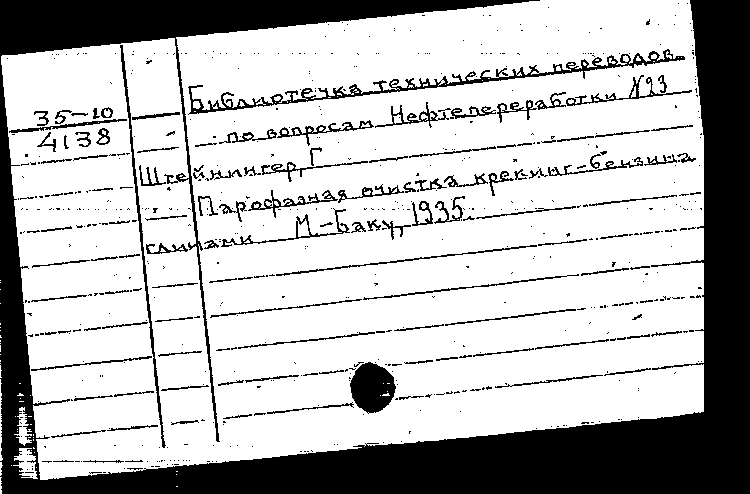 35-10
4138
Библиотечка технических переводов
по вопросам Нефтепереработки N23
Штейнингер, Г
Парофазная очистка крекинг-бензина
глинами М.-Баку, 1935.